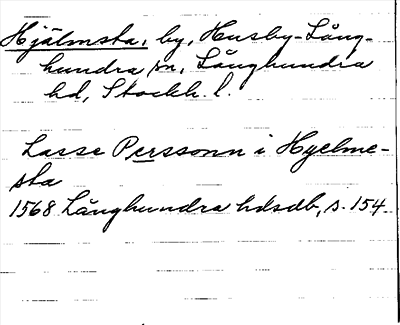 Hjälmsta, by, Husby-Lång-
hundra sn, Långhundra
hd, Stockh. l.
Lasse Perssonn i Hyelme-
sta
1568 Långhundra hdsdb, s. 154